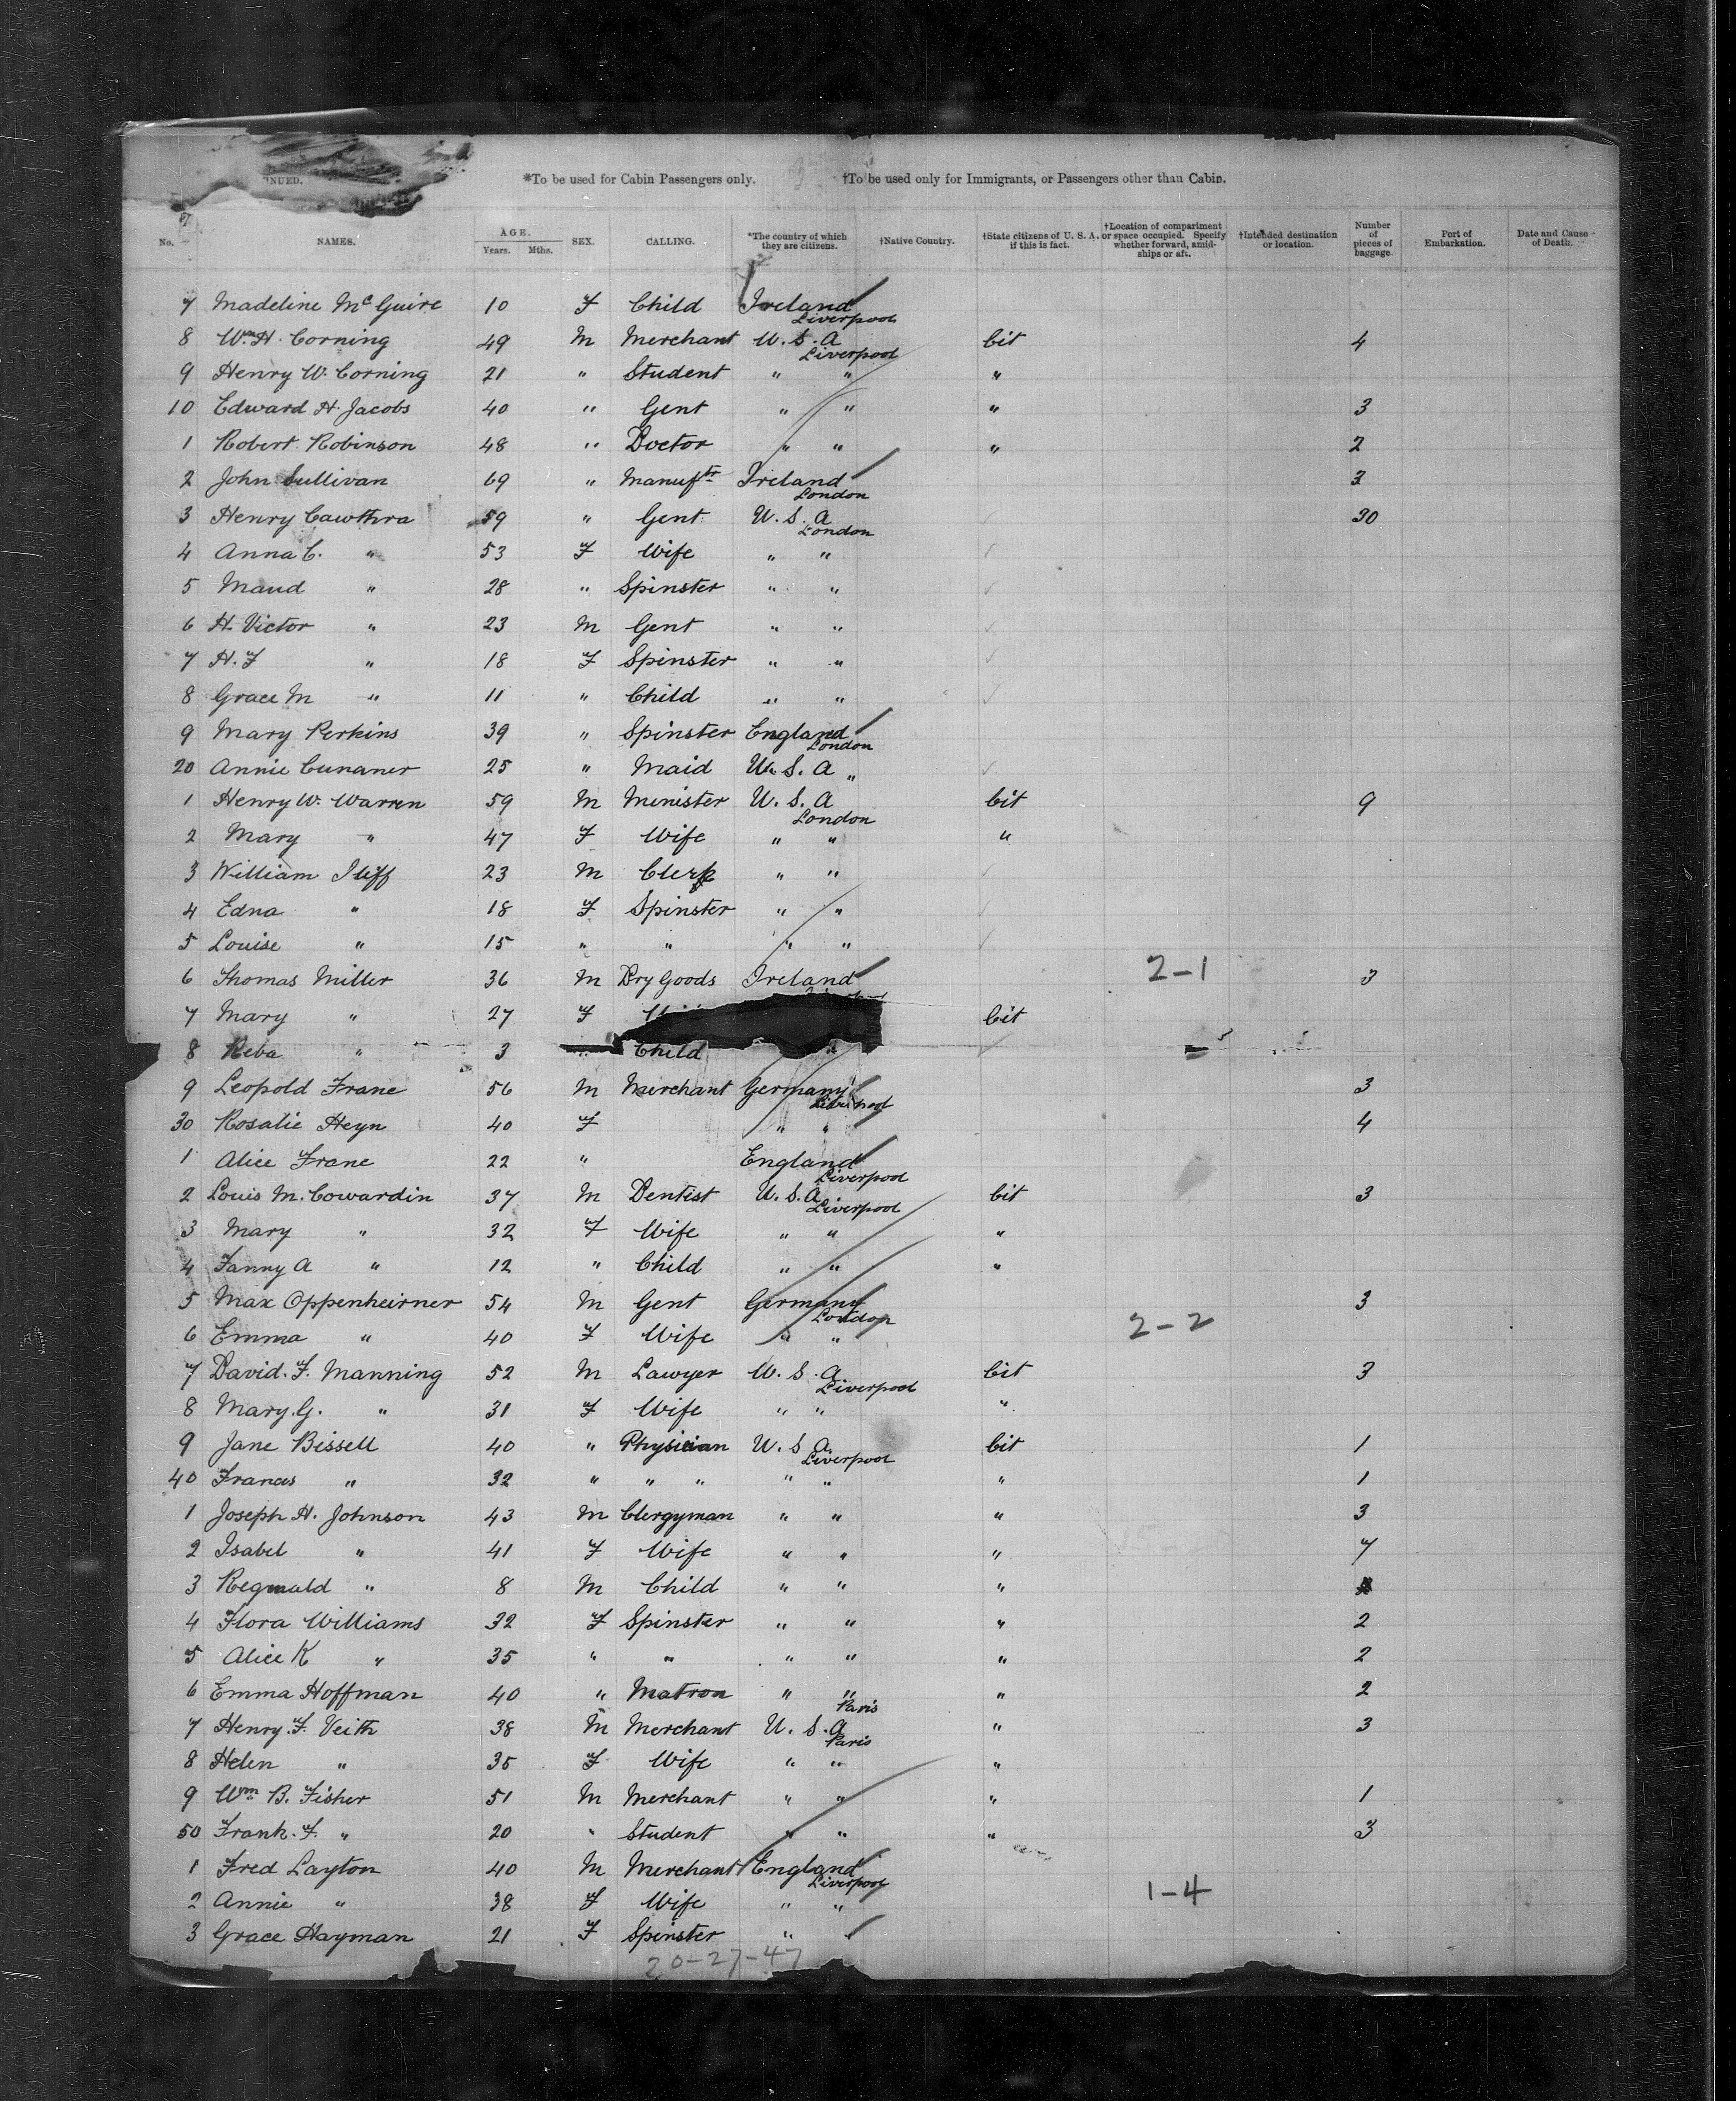 INUED. *To be used for Cabin Passengers only. †To be used only for Immigrants, or Passengers other than Cabin.
No. NAMES. AGE. Years. Mths. SEX. CALLING. *The country of which they are citizens. †Native Country. †State citizens of U. S. A. if this is fact. †Location of compartment or space occupied. Specify whether forward, amidships or aft. †Intended destination or location. Number of pieces of baggage. Port of Embarkation. Date and Cause of Death.
7 Madeline McGuire 10 F Child Ireland Liverpool
8 Wm H. Corning 49 M Merchant U. S. A Liverpool Cit 4
9 Henry W. Corning 21 " Student " " "
10 Edward H. Jacobs 40 " Gent " " " 3
1 Robert Robinson 48 " Doctor " " " 2
2 John Sullivan 69 " Manuftr Ireland London 3
3 Henry Cawthra 59 " Gent U. S. A London 30
4 Anna C. " 53 F Wife " "
5 Maud " 28 " Spinster " "
6 H. Victor " 23 M Gent " "
7 H. F " 18 F Spinster " "
8 Grace M " 11 " Child " "
9 Mary Perkins 39 " Spinster England London
20 Annie Cunaner 25 " Maid U. S. A "
1 Henry W. Warren 59 M Minister U. S. A London Cit 9
2 Mary " 47 F Wife " " "
3 William Iliff 23 M Clerk " "
4 Edna " 18 F Spinster " "
5 Louise " 15 " " " "
6 Thomas Miller 36 M Dry Goods Ireland 2-1 3
7 Mary " 27 F Cit
8 Reba " 3 " Child "
9 Leopold Frane 56 M Merchant Germany Liverpool 3
30 Rosalie Heyn 40 F " " 4
1 Alice Frane 22 " England Liverpool
2 Louis M. Cowardin 37 M Dentist U. S. A Liverpool Cit 3
3 Mary " 32 F Wife " " "
4 Fanny A " 12 " Child " " "
5 Max Oppenheimer 54 M Gent Germany London 3
6 Emma " 40 F Wife " " 2-2
7 David. F. Manning 52 M Lawyer U. S. A Liverpool Cit 3
8 Mary. G. " 31 F Wife " " "
9 Jane Bissell 40 " Physician U. S A Liverpool Cit 1
40 Frances " 32 " " " " " " 1
1 Joseph H. Johnson 43 M Clergyman " " " 3
2 Isabel " 41 F Wife " " " 7
3 Reginald " 8 M Child " " "
4 Flora Williams 32 F Spinster " " " 2
5 Alice K " 35 " " " " " 2
6 Emma Hoffman 40 " Matron " " Paris " 2
7 Henry. F. Veith 38 M Merchant U. S. A Paris " 3
8 Helen " 35 F Wife " " "
9 Wm B. Fisher 51 M Merchant " " " 1
50 Frank. F. " 20 " Student " " " 3
1 Fred Layton 40 M Merchant England Liverpool
2 Annie " 38 F Wife " " 1-4
3 Grace Hayman 21 F Spinster "
20-27-47